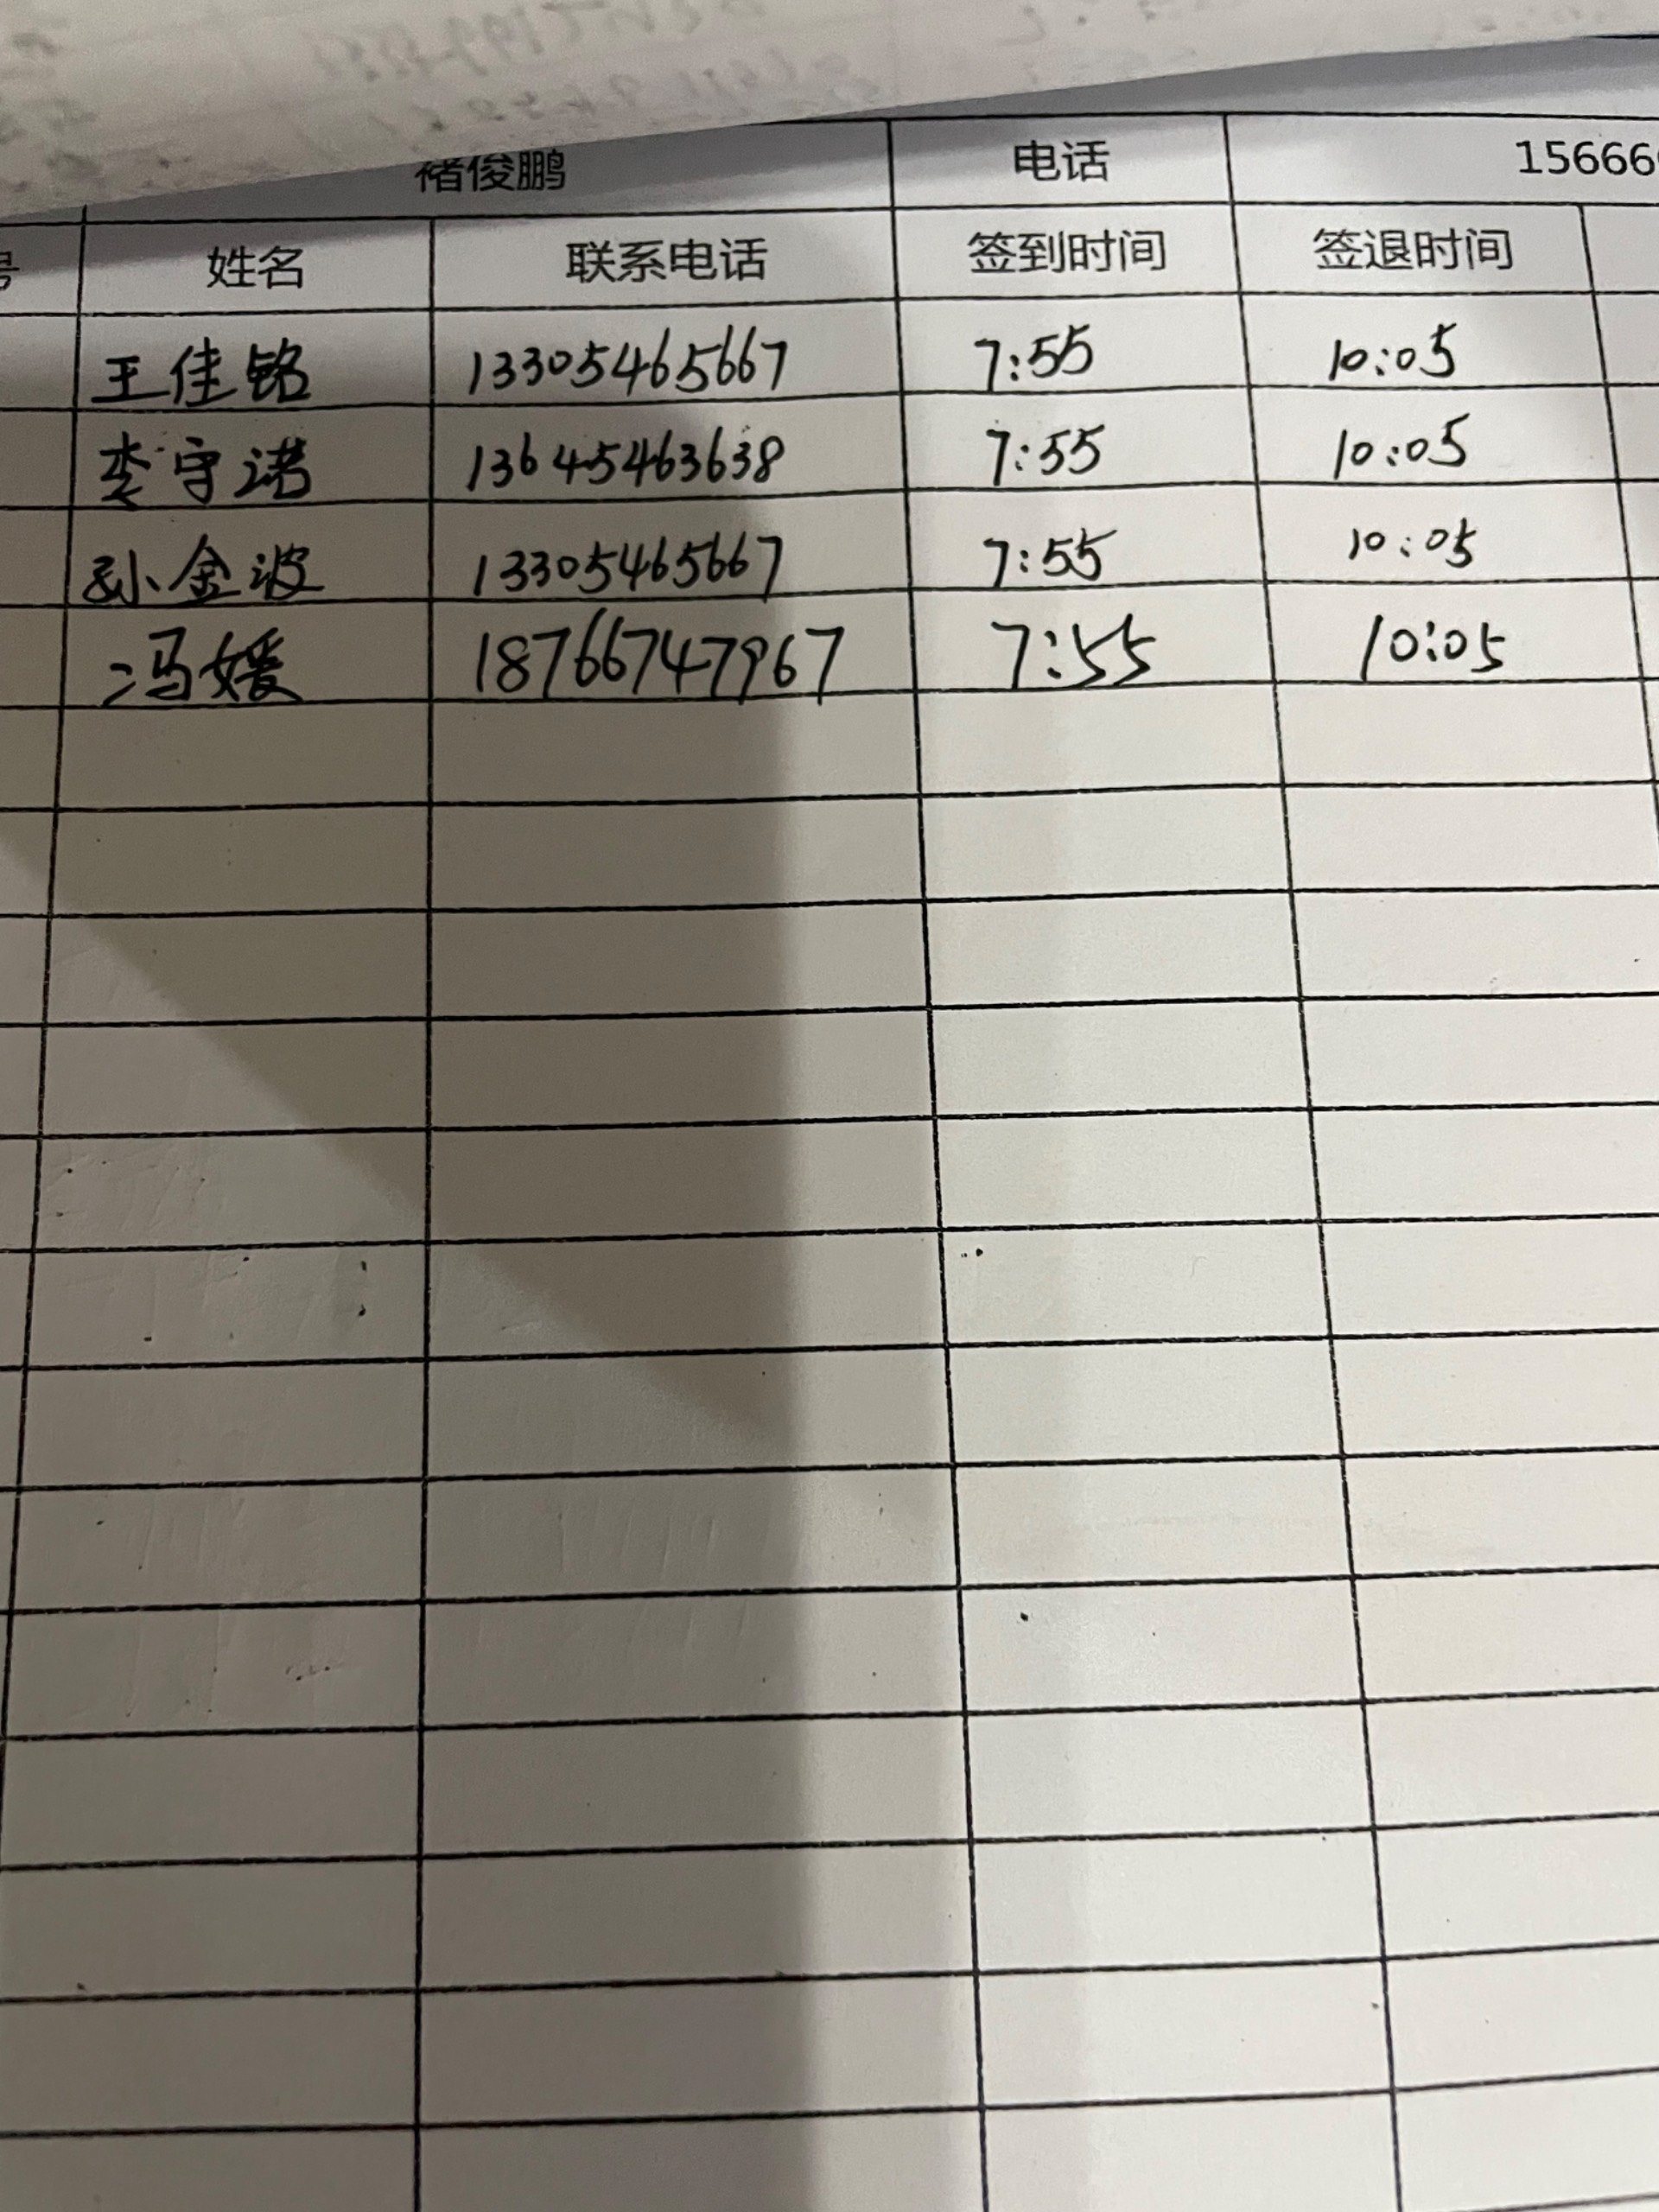 褚俊鹏 电话 15666
号 姓名 联系电话 签到时间 签退时间
王佳铭 13305465667 7:55 10:05
李守诺 13645463638 7:55 10:05
孙金波 13305465667 7:55 10:05
冯媛 18766747967 7:55 10:05